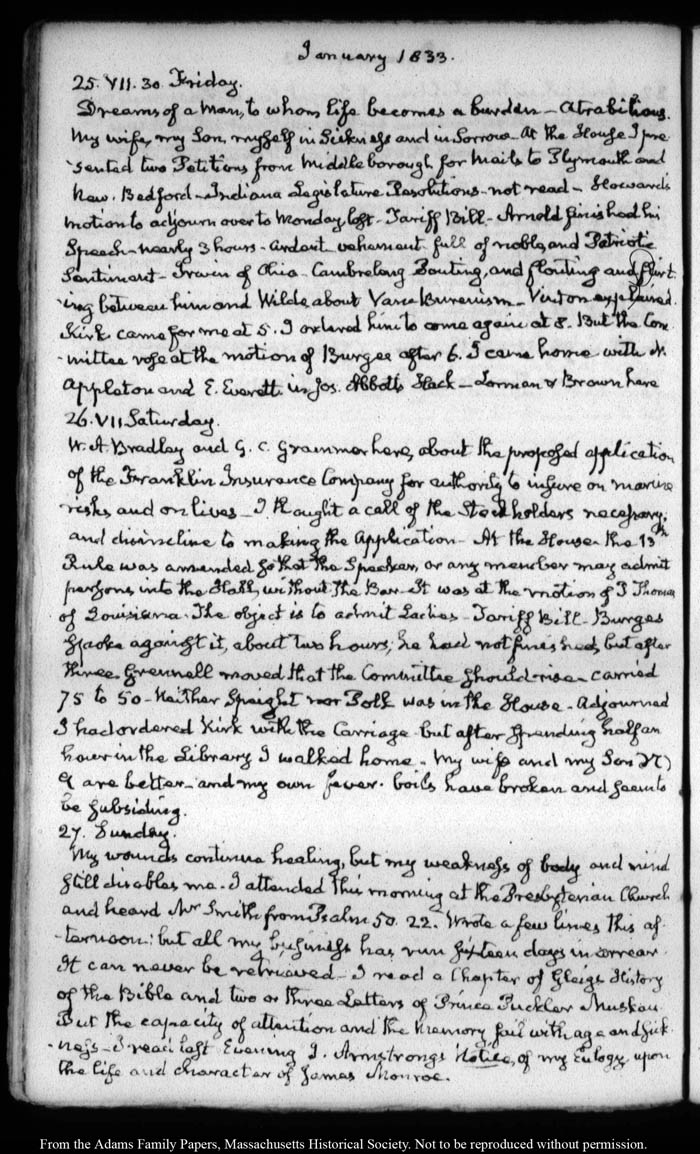 January 1833.
25. VII.30 Friday.
Dreams of a Man, to whom life becomes a burden — Atrabilious.
My wife, my Son, myself in Sickness and in Sorrow — At the House I pre
-sented two Petitions from Middleborough for Mails to Plymouth and
New-Bedford — Indiana Legislature Resolutions — not read — Howard's
motion to adjourn over to Monday, lost — Tariff Bill — Arnold finished his
Speech — nearly 3 hours — ardent vehement full of noble, and Patriotic
Sentiment — Irwin of Ohio — Cambreleng Pouting, and flouting and flirt
-ing between him and Wilde about Van Burenism — Vinton explained.
Kirk came for me at 5. I ordered him to come again at 8. But the Com
-mittee rose at the motion of Burges after 6. I came home with N.
Appleton and E. Everett in Jos. Abbott's Hack — Lorman & Brown here
26. VII Saturday.
W. A. Bradley and G. C. Grammer here, about the proposed application
of the Franklin Insurance Company for authority to insure on marine
risks and on lives — I thought a call of the Stockholders necessary,
and disincline to making the Application — At the House the 13th
Rule was amended so that the Speaker, or any member may admit
persons into the Hall, without the Bar — It was at the motion of P Thomas
of Louisiana. The object is to admit Ladies — Tariff Bill — Burges
spoke against it, about two hours; he had not finished, but after
three Grennell moved that the Committee should rise — carried
75 to 50 — Neither Speight nor Polk was in the House — Adjourned
I had ordered Kirk with the Carriage but after spending half an
hour in the Library I walked home — My wife and my Son
are better — and my own fever-boils have broken and seem to
be subsiding.
27. Sunday.
My wounds continue healing, but my weakness of body and mind
still disables me — I attended this morning at the Presbyterian Church
and heard Mr Smith from Psalm 50. 22. Wrote a few lines this af
-ternoon: but all my business has run sixteen days in arrear.
It can never be retrieved — I read a Chapter of Gleigs History
of the Bible and two or three Letters of Prince Puckler Muskau.
But the capacity of attention and the Memory, fail with age and sick
-ness — I read last Evening J. Armstrongs Notice, of my Eulogy upon
the life and character of James Monroe.
From the Adams Family Papers, Massachusetts Historical Society. Not to be reproduced without permission.